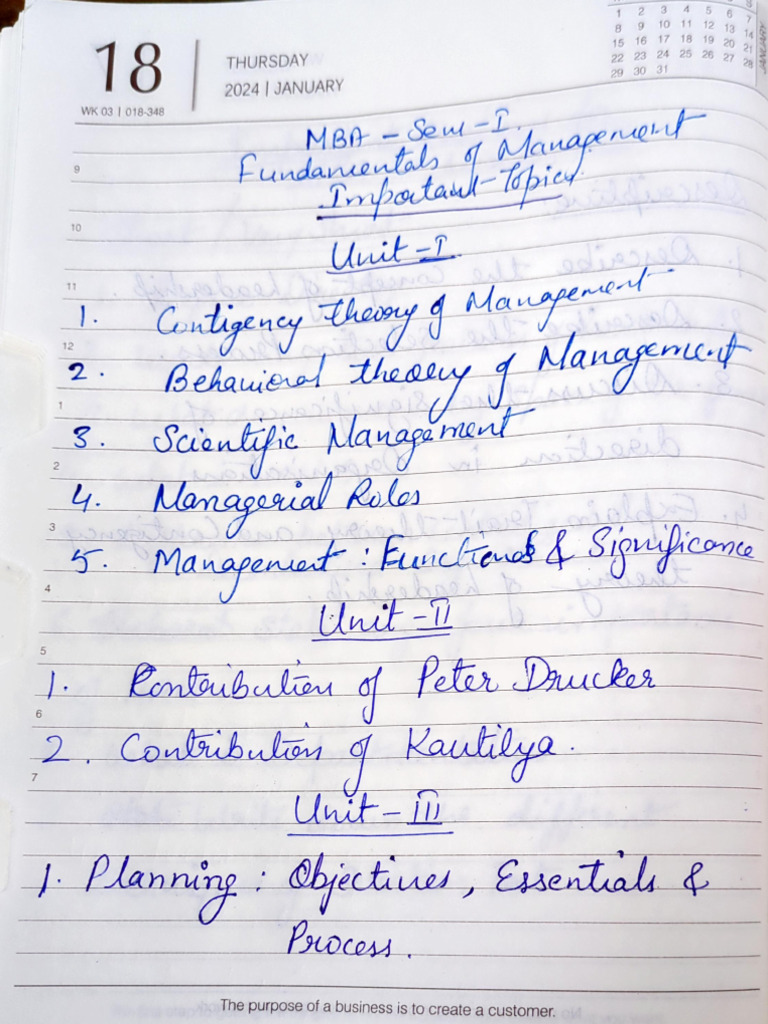 18
THURSDAY
2024 | JANUARY
WK 03 | 018-348
1 2 3 4 5 6 7
8 9 10 11 12 13 14
15 16 17 18 19 20 21
22 23 24 25 26 27 28
29 30 31
JANUARY
MBA - Sem - I
9
Fundamentals of Management
Important Topics
10
Unit - I
11
1. Contigency theory of Management
12
2. Behavioral theory of Management
1
3. Scientific Management
2
4. Managerial Roles
3
5. Management : Functions & Significance
4
Unit - II
5
1. Contribution of Peter Drucker
6
2. Contribution of Kautilya.
7
Unit - III
1. Planning : Objectives, Essentials &
Process.
The purpose of a business is to create a customer.